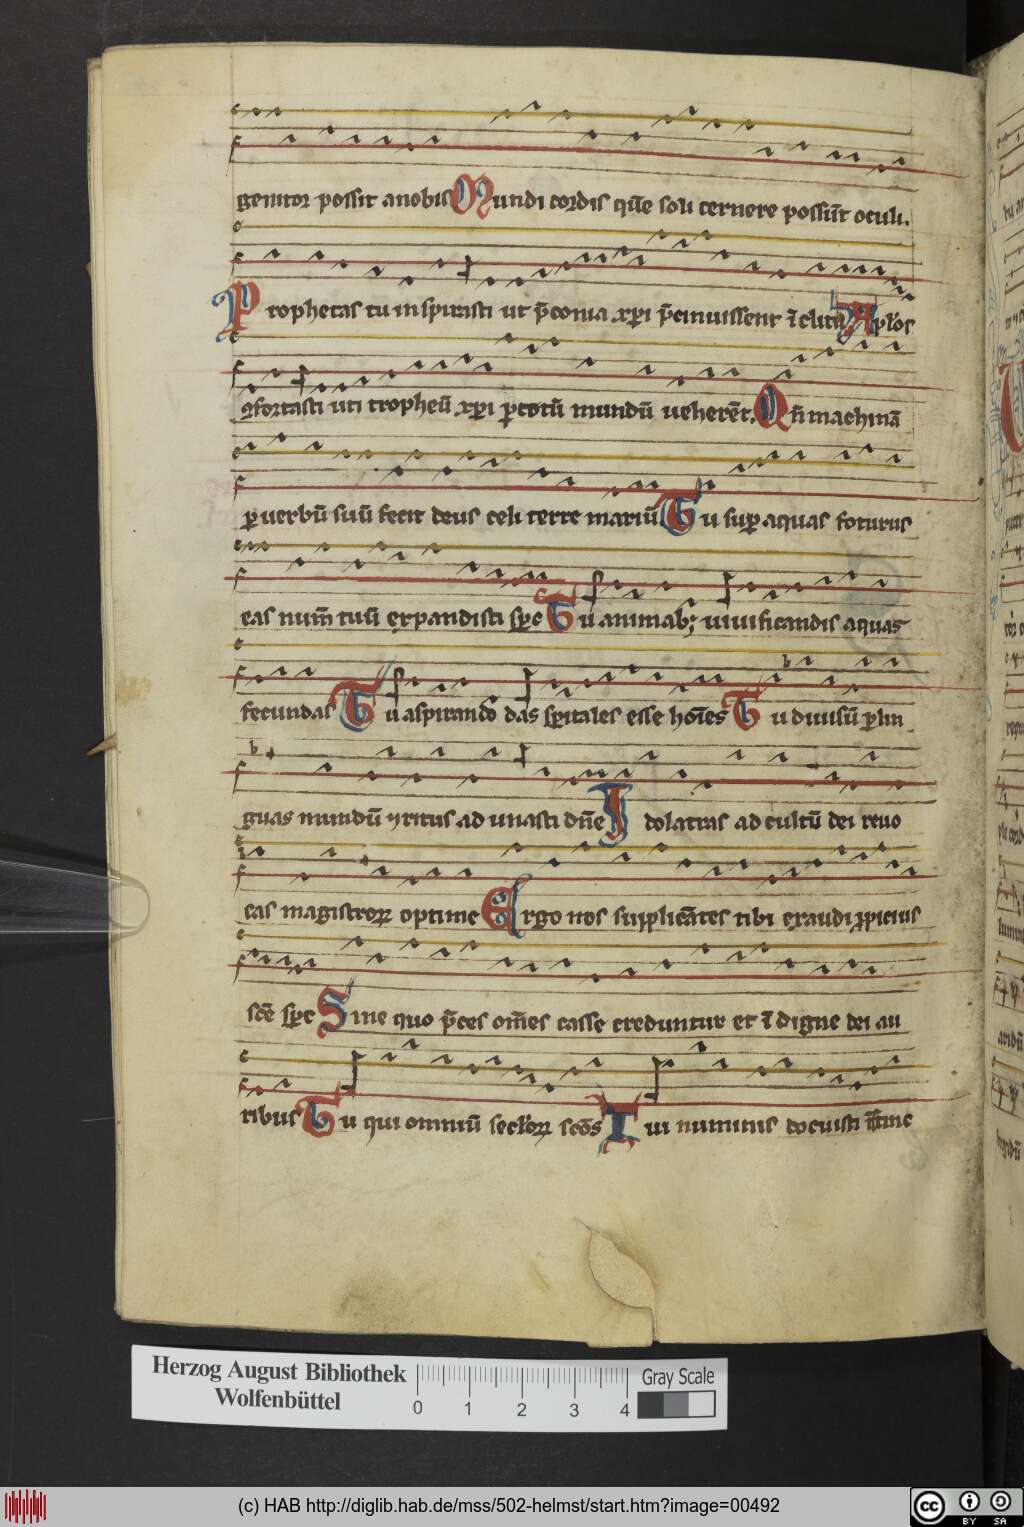 genitor possit a nobis Mundi cordis quē soli cernere possūt oculi.
Prophetas tu inspirasti ut p̄conia xp̄i p̄cinuissent īclita Ap̄los
ꝯfortasti uti tropheū xp̄i ꝑ totū mundū ueherēt. Qn̄ machinā
ꝑ uerbū suū fecit deus celi terre mariū Tu suꝑ aquas foturus
eas num̄ tuū expandisti sp̄c Tu animabꝫ uiuificandis aquas
fecundas Tu aspirando das sp̄itales esse hoīes Tu diuisū ꝑ lin
guas mundū ⁊ ritus adunasti dn̄e Idolatras ad cultū dei reuo
cas magistroꝝ optime Ergo nos supplicātes tibi exaudi ꝓpicius
scē sp̄c Sine quo p̄ces om̄es casse creduntur et īdigne dei au
ribus Tu qui omniū secloꝝ scōs Tui numinis docuisti
Herzog August Bibliothek
Wolfenbüttel
0 1 2 3 4
Gray Scale
(c) HAB http://diglib.hab.de/mss/502-helmst/start.htm?image=00492
cc BY SA